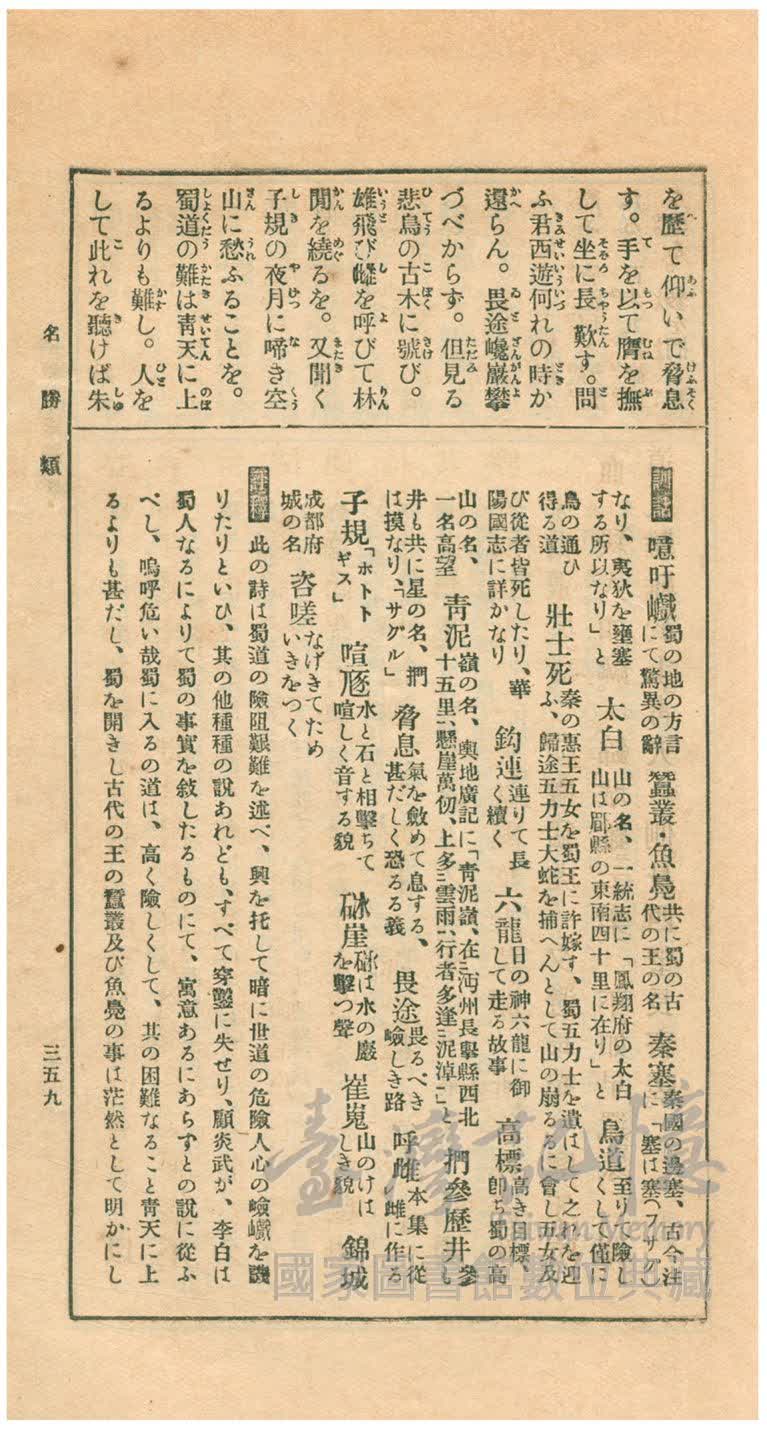 を歷て仰いで脅息
す。手を以て膺を撫
して坐に長歎す。問
ふ君西遊何れの時か
還らん。畏途巉巖攀
づべからず。但見る
悲鳥の古木に號び。
雄飛び雌を呼びて林
閒を繞るを。又聞く
子規の夜月に啼き空
山に愁ふることを。
蜀道の難は靑天に上
るよりも難し。人を
して此れを聽けば朱
噫吁巇 蜀の地の方言にて驚異の辭 蠶叢・魚鳧 共に蜀の古代の王の名 秦塞 秦國の邊塞、古今注に「塞は塞(フサグ)
なり、夷狄を壅塞する所以なり」と 太白 山の名、一統志に「鳳翔府の太白山は郿縣の東南四十里に在り」と 鳥道 至りて險しくして僅に
鳥の通ひ得る道 壯士死 秦の惠王五女を蜀王に許嫁す、蜀五力士を遣はして之れを迎ふ、歸途五力士大蛇を捕へんとして山の崩るるに會し五女及
び從者皆死したり、華陽國志に詳かなり 鈎連 連りて長く續く 六龍 日の神六龍に御して走る故事 高標 高き目標、卽ち蜀の高
山の名、一名高望 靑泥 嶺の名、輿地廣記に「靑泥嶺、在沔州長擧縣西北十五里、懸崖萬仞、上多雲雨、行者多逢泥淖」と 捫參歷井 參も
井も共に星の名、捫は摸なり、「サグル」 脅息 氣を斂めて息する、甚だしく恐るる義 畏途 畏るべき嶮しき路 呼雌 本集に從雌に作る
子規 「ホトトギス」 喧豗 水と石と相擊ちて喧しく音する貌 砯崖 砯は水の巖を擊つ聲 崔嵬 山のけはしき貌 錦城
成都府城の名 咨嗟 なげきてためいきをつく
此の詩は蜀道の險阻艱難を述べ、興を托して暗に世道の危險人心の嶮巇を譏
りたりといひ、其の他種種の說あれども、すべて穿鑿に失せり、顧炎武が、李白は
蜀人なるによりて蜀の事實を敍したるものにて、寓意あるにあらずとの說に從ふ
べし、嗚呼危い哉蜀に入るの道は、高く險しくして、其の困難なること靑天に上
るよりも甚だし、蜀を開きし古代の王の蠶叢及び魚鳧の事は茫然として明かにし
名勝類
三五九
臺灣記憶
Taiwan Memory
國家圖書館數位典藏